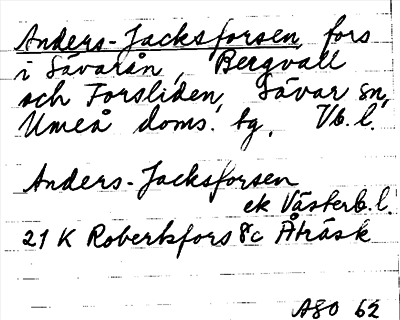 Anders-Jacksforsen, fors
i Sävarån, Bergvall
och Forsliden, Sävar sn,
Umeå doms. tg, Vb. l.
Anders-Jacksforsen
ek Västerb. l.
21 K Robertsfors 8c Åträsk
ASO 62